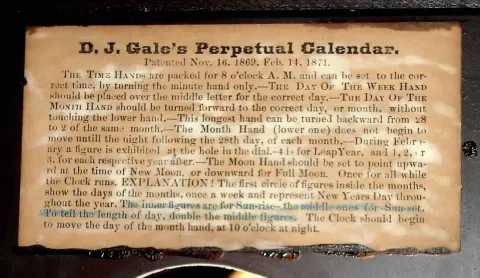 D. J. Gale's Perpetual Calendar.
Patented Nov. 16. 1869, Feb. 14. 1871.
THE TIME HANDS are packed for 8 o'clock A. M. and can be set to the cor-
rect time, by turning the minute hand only.—THE DAY OF THE WEEK HAND
should be placed over the middle letter for the correct day.—THE DAY OF THE
MONTH HAND should be turned forward to the correct day, or month, without
touching the lower hand.—This longest hand can be turned backward from 28
to 2 of the same month.—The Month Hand (lower one) does not begin to
move untill the night following the 28th day, of each month.—During Febru-
ary a figure is exhibited at the hole in the dial,-4 is for Leap Year, and 1, 2, or
3, for each respective year after.—The Moon Hand should be set to point upwa-
rd at the time of New Moon, or downward for Full Moon. Once for all while
the Clock runs. EXPLANATION! The first circle of figures inside the months,
show the days of the months, once a week and represent New Years Day throu-
ghout the year. The inner figures are for Sun-rise, the middle ones for Sun-set.
To tell the length of day, double the middle figures. The Clock should begin
to move the day of the month hand, at 10 o'clock at night.